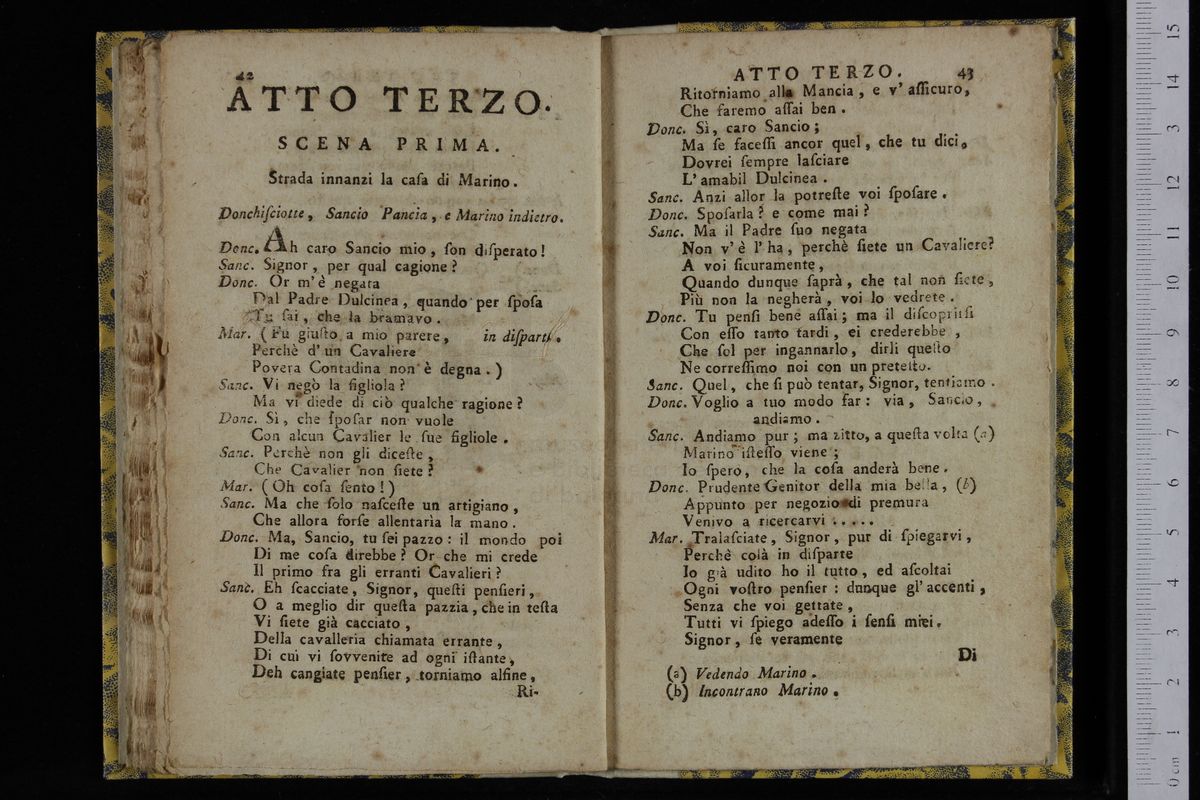 42
ATTO TERZO.
SCENA PRIMA.
Strada innanzi la caſa di Marino.
Donchiſciotte, Sancio Pancia, e Marino indietro.
Donc. Ah caro Sancio mio, ſon diſperato!
Sanc. Signor, per qual cagione?
Donc. Or m'è negata
Dal Padre Dulcinea, quando per ſpoſa
Tu ſai, che la bramavo.
Mar. (Fù giuſto a mio parere, in diſparte.
Perchè d'un Cavaliere
Povera Contadina non è degna.)
Sanc. Vi negò la figliola?
Ma vi diede di ciò qualche ragione?
Donc. Sì, che ſpoſar non vuole
Con alcun Cavalier le ſue figliole.
Sanc. Perchè non gli diceſte,
Che Cavalier non ſiete?
Mar. (Oh coſa ſento!)
Sanc. Ma che ſolo naſceſte un artigiano,
Che allora forſe allentaria la mano.
Donc. Ma, Sancio, tu ſei pazzo: il mondo poi
Di me coſa direbbe? Or che mi crede
Il primo fra gli erranti Cavalieri?
Sanc. Eh ſcacciate, Signor, queſti penſieri,
O a meglio dir queſta pazzia, che in teſta
Vi ſiete già cacciato,
Della cavalleria chiamata errante,
Di cui vi ſovvenite ad ogni iſtante,
Deh cangiate penſier, torniamo alfine,
Ri-
ATTO TERZO. 43
Ritorniamo alla Mancia, e v' aſſicuro,
Che faremo aſſai ben.
Donc. Sì, caro Sancio;
Ma ſe faceſſi ancor quel, che tu dici,
Dovrei ſempre laſciare
L'amabil Dulcinea.
Sanc. Anzi allor la potreſte voi ſpoſare.
Donc. Spoſarla? e come mai?
Sanc. Ma il Padre ſuo negata
Non v'è l'ha, perchè ſiete un Cavaliere?
A voi ſicuramente,
Quando dunque ſaprà, che tal non ſiete,
Più non la negherà, voi lo vedrete.
Donc. Tu penſi bene aſſai; ma il diſcoprirſi
Con eſſo tanto tardi, ei crederebbe,
Che ſol per ingannarlo, dirli queſto
Ne correſſimo noi con un preteſto.
Sanc. Quel, che ſi può tentar, Signor, tentiamo.
Donc. Voglio a tuo modo far: via, Sancio,
andiamo.
Sanc. Andiamo pur; ma zitto, a queſta volta (a)
Marino iſteſſo viene;
Io ſpero, che la coſa anderà bene.
Donc. Prudente Genitor della mia bella, (b)
Appunto per negozio di premura
Venivo a ricercarvi.....
Mar. Tralaſciate, Signor, pur di ſpiegarvi,
Perchè colà in diſparte
Io già udito ho il tutto, ed aſcoltai
Ogni voſtro penſier: dunque gl'accenti,
Senza che voi gettate,
Tutti vi ſpiego adeſſo i ſenſi miei.
Signor, ſe veramente
Di
(a) Vedendo Marino.
(b) Incontrano Marino.